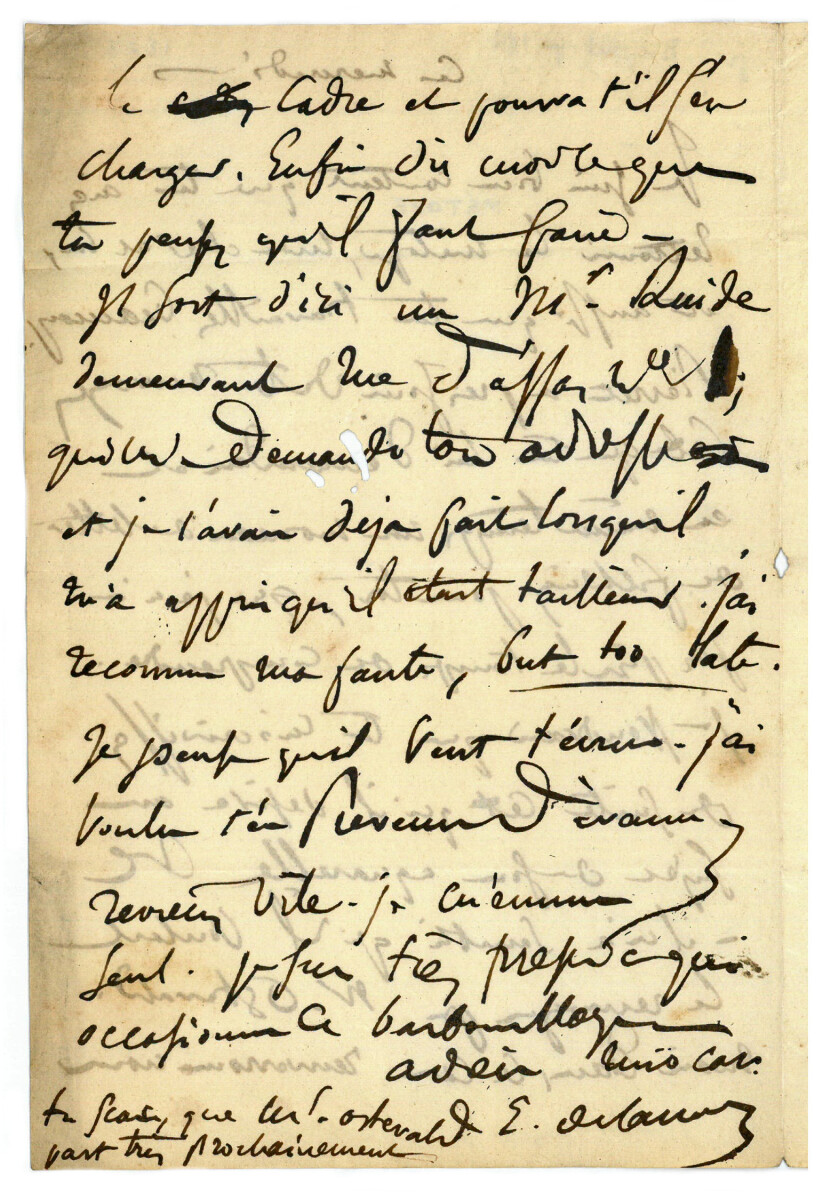 le cadre et pourra t'il s'en
charger. Enfin dis moi ce que
tu penses qu'il faut faire –
Il sort d'ici un Mr.
demeurant rue d'
demander ton adresse
et je l'avais déja fait lorsqu'il
m'a appris qu'il était tailleur. j'ai
reconnu ma faute, but too late.
Je pense qu'il veut t'écrire – j'ai
voulu t'en prevenir d'avance
reviens vite – je m'ennuie
seul. je suis très pressé ce qui
occasionne ce barbouillage
adieu mio car.
E. Delacroix
tu sçais que Mr. osterwald
part très prochainement